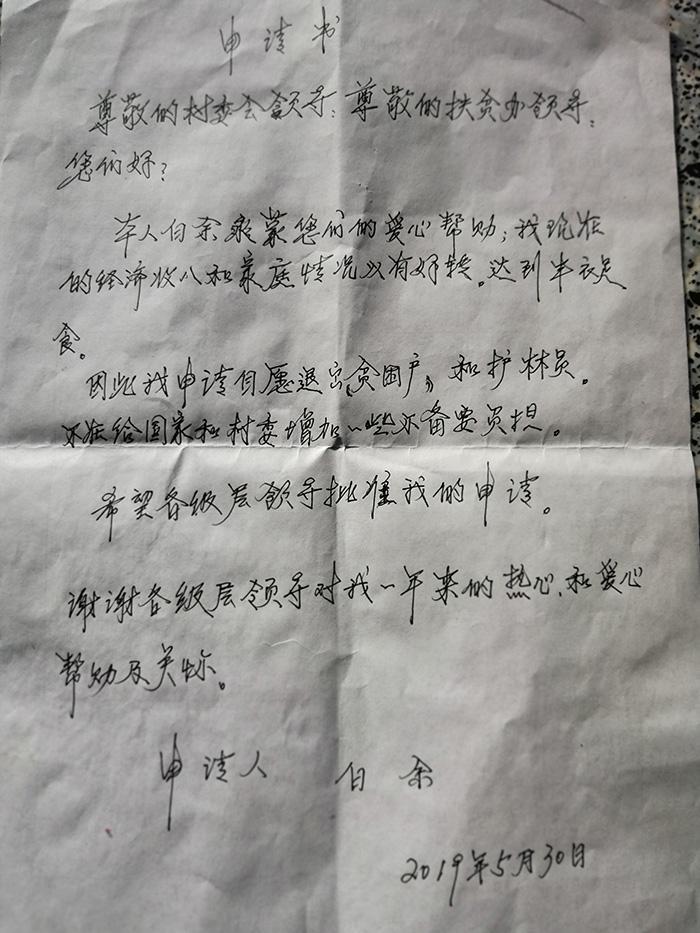 申请书
尊敬的村委会领导：尊敬的扶贫办领导：
您们好？
本人白余承蒙您们的爱心帮助；我现在
的经济收入和家庭情况以有好转。达到丰衣足
食。
因此我申请自愿退出《贫困户》和护林员。
不在给国家和村委增加一些不备要负担。
希望各级层领导批准我的申请。
谢谢各级层领导对我一年来的热心、和爱心
帮助及关怀。
申请人 白余
2019年5月30日